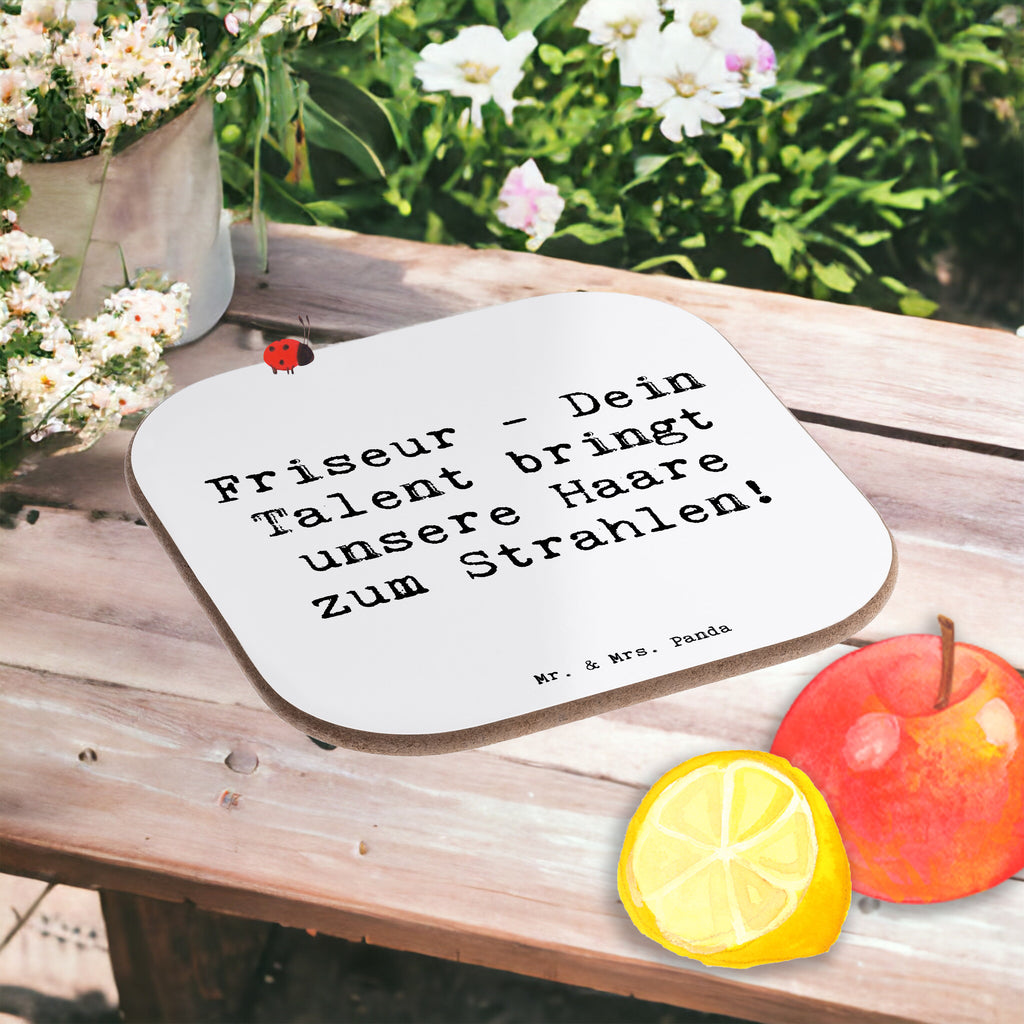 Friseur - Dein
Talent bringt
unsere Haare
zum Strahlen!
Mr. & Mrs. Panda